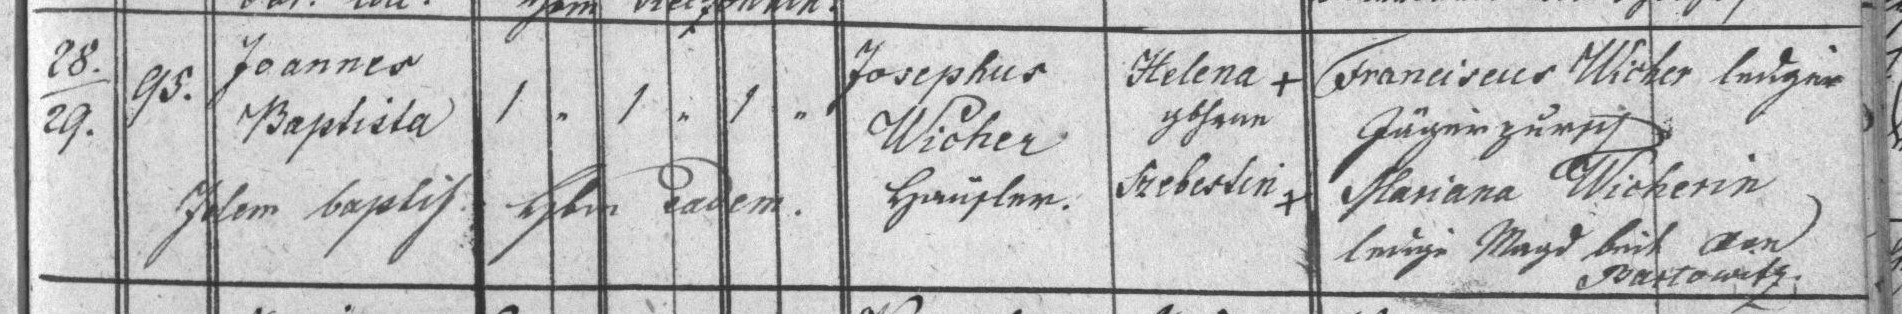 28.
29.
95.
Joannes
Baptista
Idem baptis.
1 " 1 " 1 "
Hebm eadem.
Josephus
Wicher
Häusler.
Helena +
gebohrene
Szebestin +
Franciscus Wicher lediger
Jägerpursch
Mariana Wicherin
ledige Magd beide von
Bartowitz.